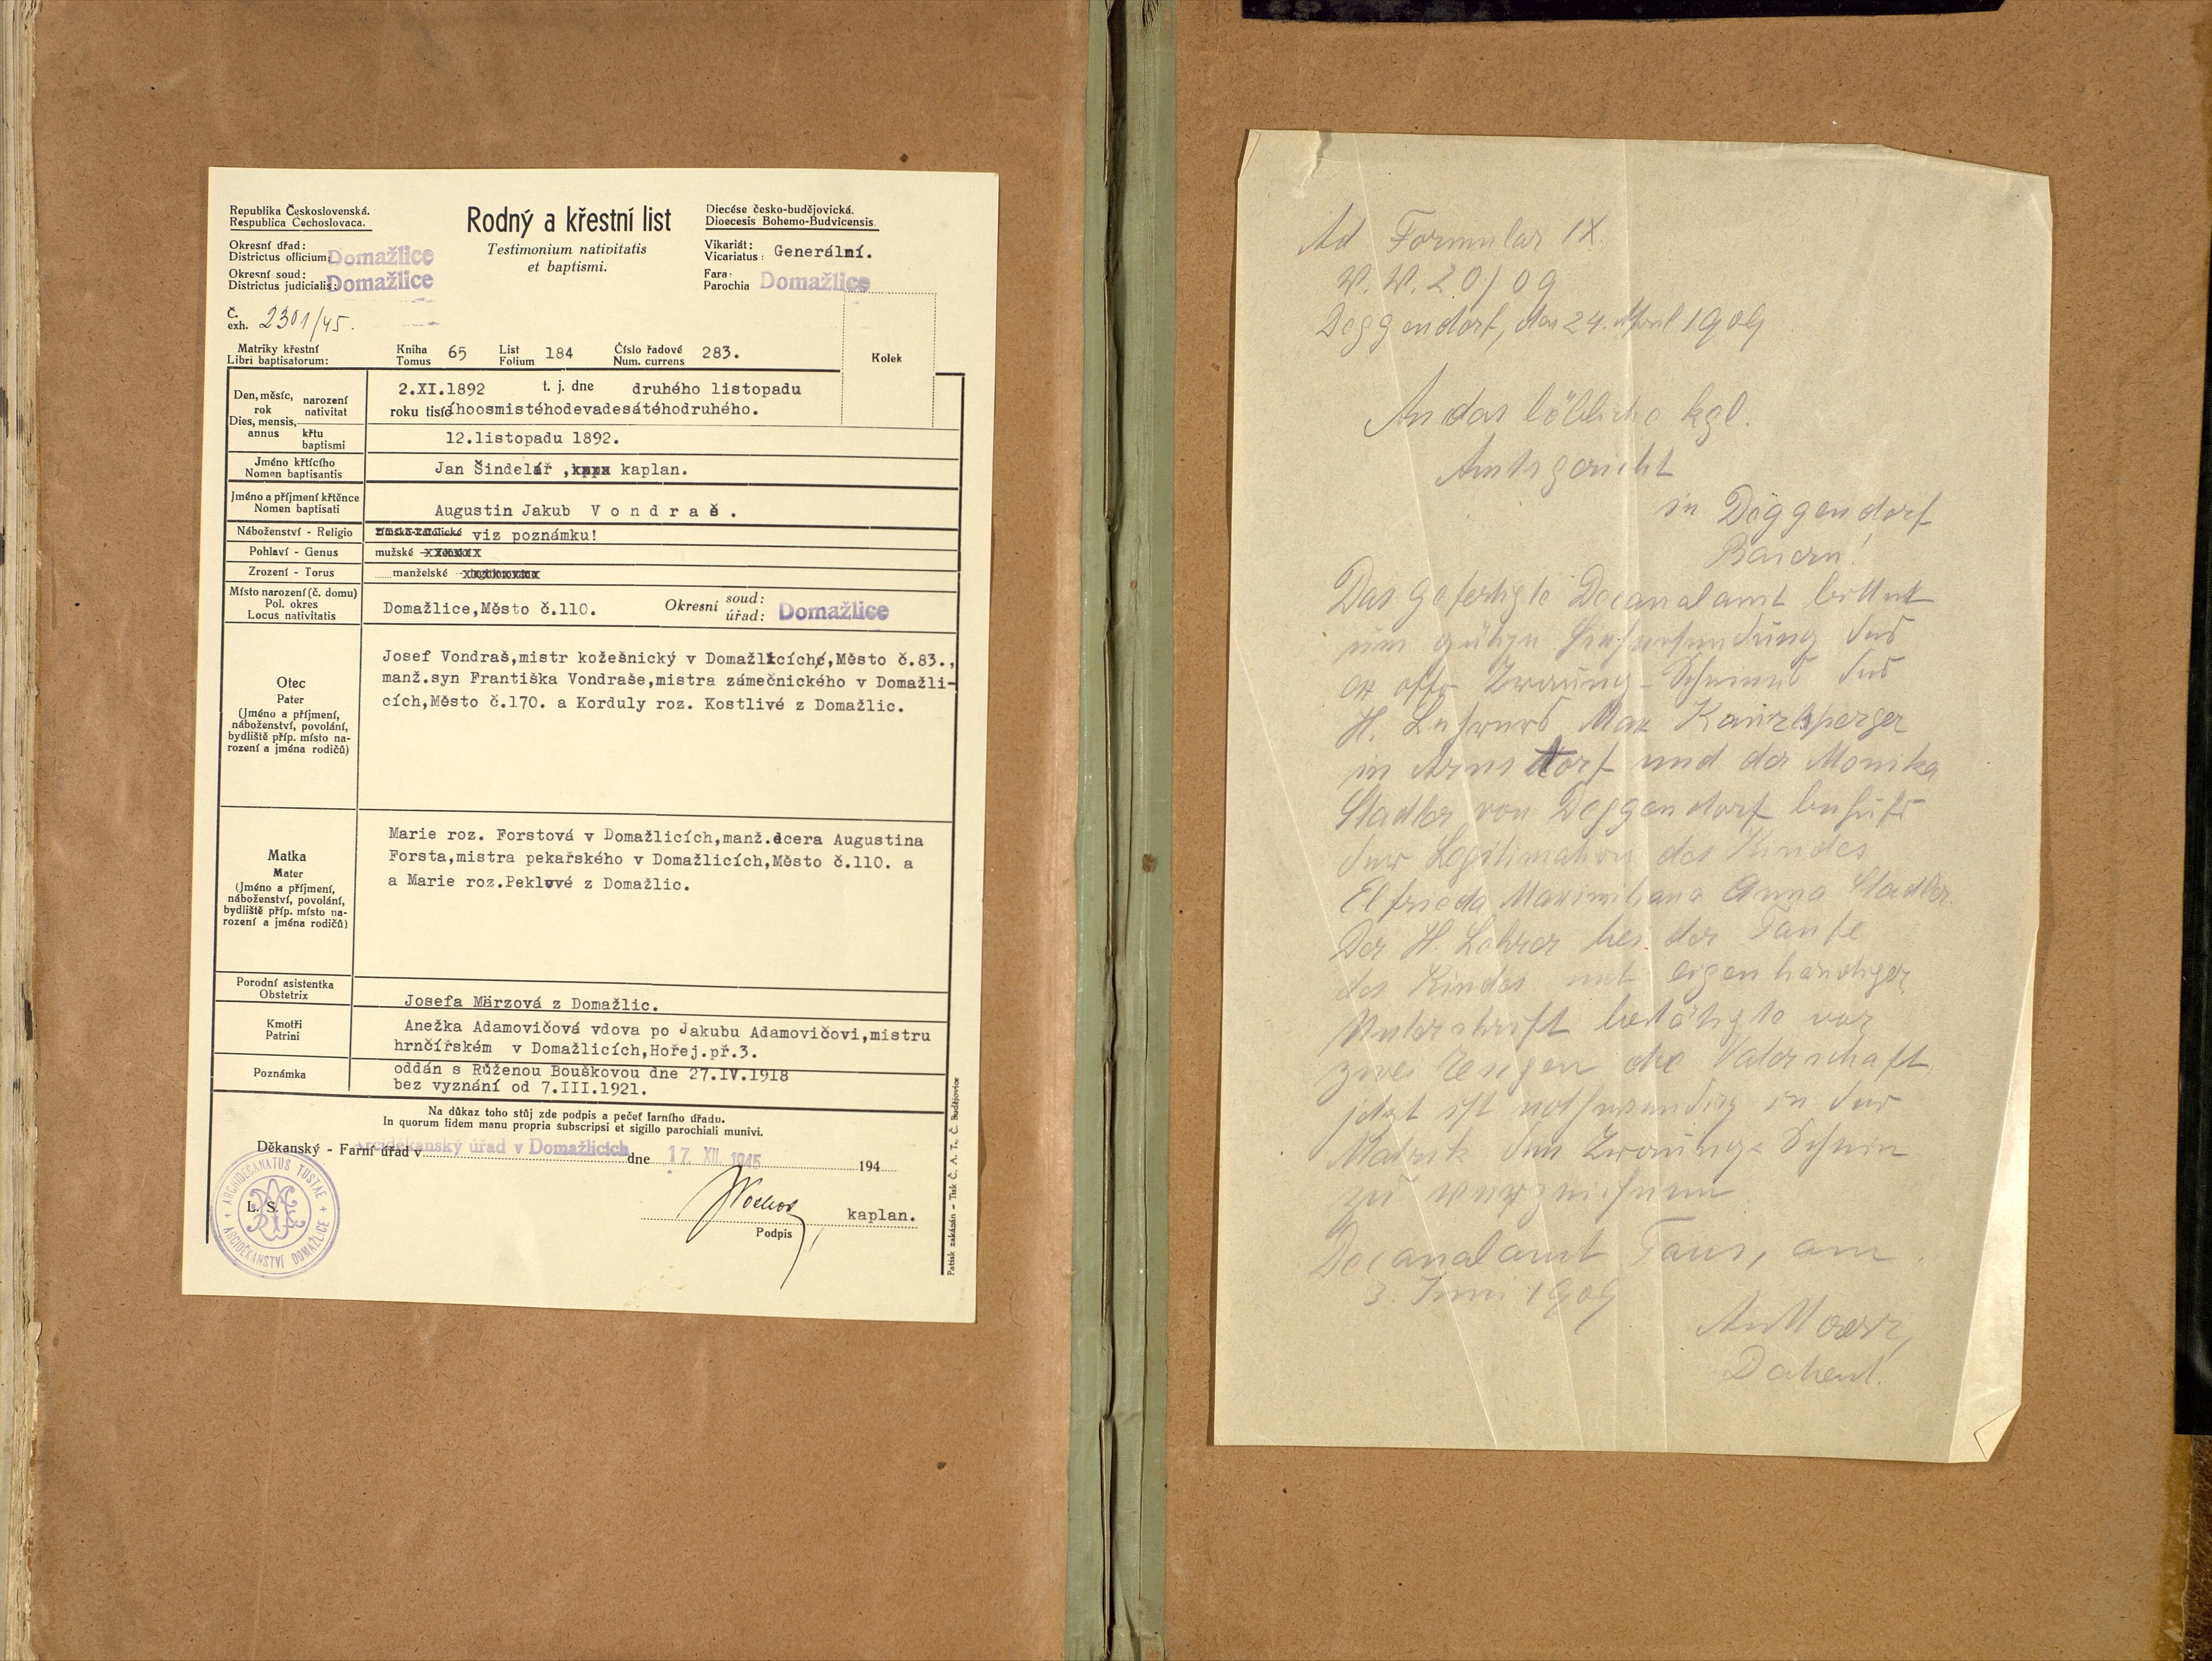 Republika Československá.
Respublica Čechoslovaca.
Rodný a křestní list
Testimonium nativitatis
et baptismi.
Diecése česko-budějovická.
Dioecesis Bohemo-Budvicensis.
Okresní úřad:
Districtus officium:
Domažlice
Okresní soud:
Districtus judicialis:
Domažlice
Vikariát:
Vicariatus:
Generální.
Fara:
Parochia
Domažlice
Č.
exh. 2301/45.
Kolek
Matriky křestní
Libri baptisatorum:
Kniha
Tomus
65
List
Folium
184
Číslo řadové
Num. currens
283.
Den, měsíc,
rok
Dies, mensis,
annus
narození
nativitat
křtu
baptismi
2.XI.1892 t. j. dne druhého listopadu
roku tisícíhoosmistéhodevadesátéhodruhého.
12.listopadu 1892.
Jméno křtícího
Nomen baptisantis
Jan Šindelář , kaplan.
Jméno a příjmení křtěnce
Nomen baptisati
Augustin Jakub V o n d r a š .
Náboženství - Religio
viz poznámku!
Pohlaví - Genus
mužské
Zrození - Torus
manželské
Místo narození (č. domu)
Pol. okres
Locus nativitatis
Domažlice,Město č.110.
Okresní soud:
úřad:
Domažlice
Otec
Pater
(Jméno a příjmení,
náboženství, povolání,
bydliště příp. místo na-
rození a jména rodičů)
Josef Vondraš,mistr kožešnický v Domažlicích,Město č.83.,
manž.syn Františka Vondraše,mistra zámečnického v Domažli-
cích,Město č.170. a Korduly roz. Kostlivé z Domažlic.
Matka
Mater
(Jméno a příjmení,
náboženství, povolání,
bydliště příp. místo na-
rození a jména rodičů)
Marie roz. Forstová v Domažlicích,manž.dcera Augustina
Forsta,mistra pekařského v Domažlicích,Město č.110. a
a Marie roz.Peklové z Domažlic.
Porodní asistentka
Obstetrix
Josefa Märzová z Domažlic.
Kmotři
Patrini
Anežka Adamovičová vdova po Jakubu Adamovičovi,mistru
hrnčířském v Domažlicích,Hořej.př.3.
Poznámka
oddán s Růženou Bouškovou dne 27.IV.1918
bez vyznání od 7.III.1921.
Na důkaz toho stůj zde podpis a pečeť farního úřadu.
In quorum fidem manu propria subscripsi et sigillo parochiali munivi.
Děkanský - Farní úřad v Arciděkanský úřad v Domažlicích dne 17. XII. 1945 194
L. S.
ARCHIDECANATUS TUSTAE
ARCIDĚKANSTVÍ DOMAŽLICE
kaplan.
Podpis
Patisk zakázán - Tisk Č. A. T., Č. Budějovice
Ad Formular IX.
V. V. 20/09
Deggendorf, den 24. April 1909
An das löbliche kgl.
Amtsgericht
in Deggendorf
Baiern!
Das gefertigte Decanalamt bittet
um gütige Hiehersendung des
ex offo Trauung-Scheines des
H. Lehrers Max
in Arnstorf und der Monika
Stadler von Deggendorf behufs
der Legitimation des Kindes
Elfrieda Maximiliana Anna Stadler.
Der H. Lehrer bei der Taufe
des Kindes mit eigenhändiger
Unterschrift bestätigte vor
zwei Zeugen die Vaterschaft
jetzt ist nothwendig in der
Matrik den Trauungs Schein
zu verzeichnen
Decanalamt Taus, am
3. Juni 1909
Dechent.